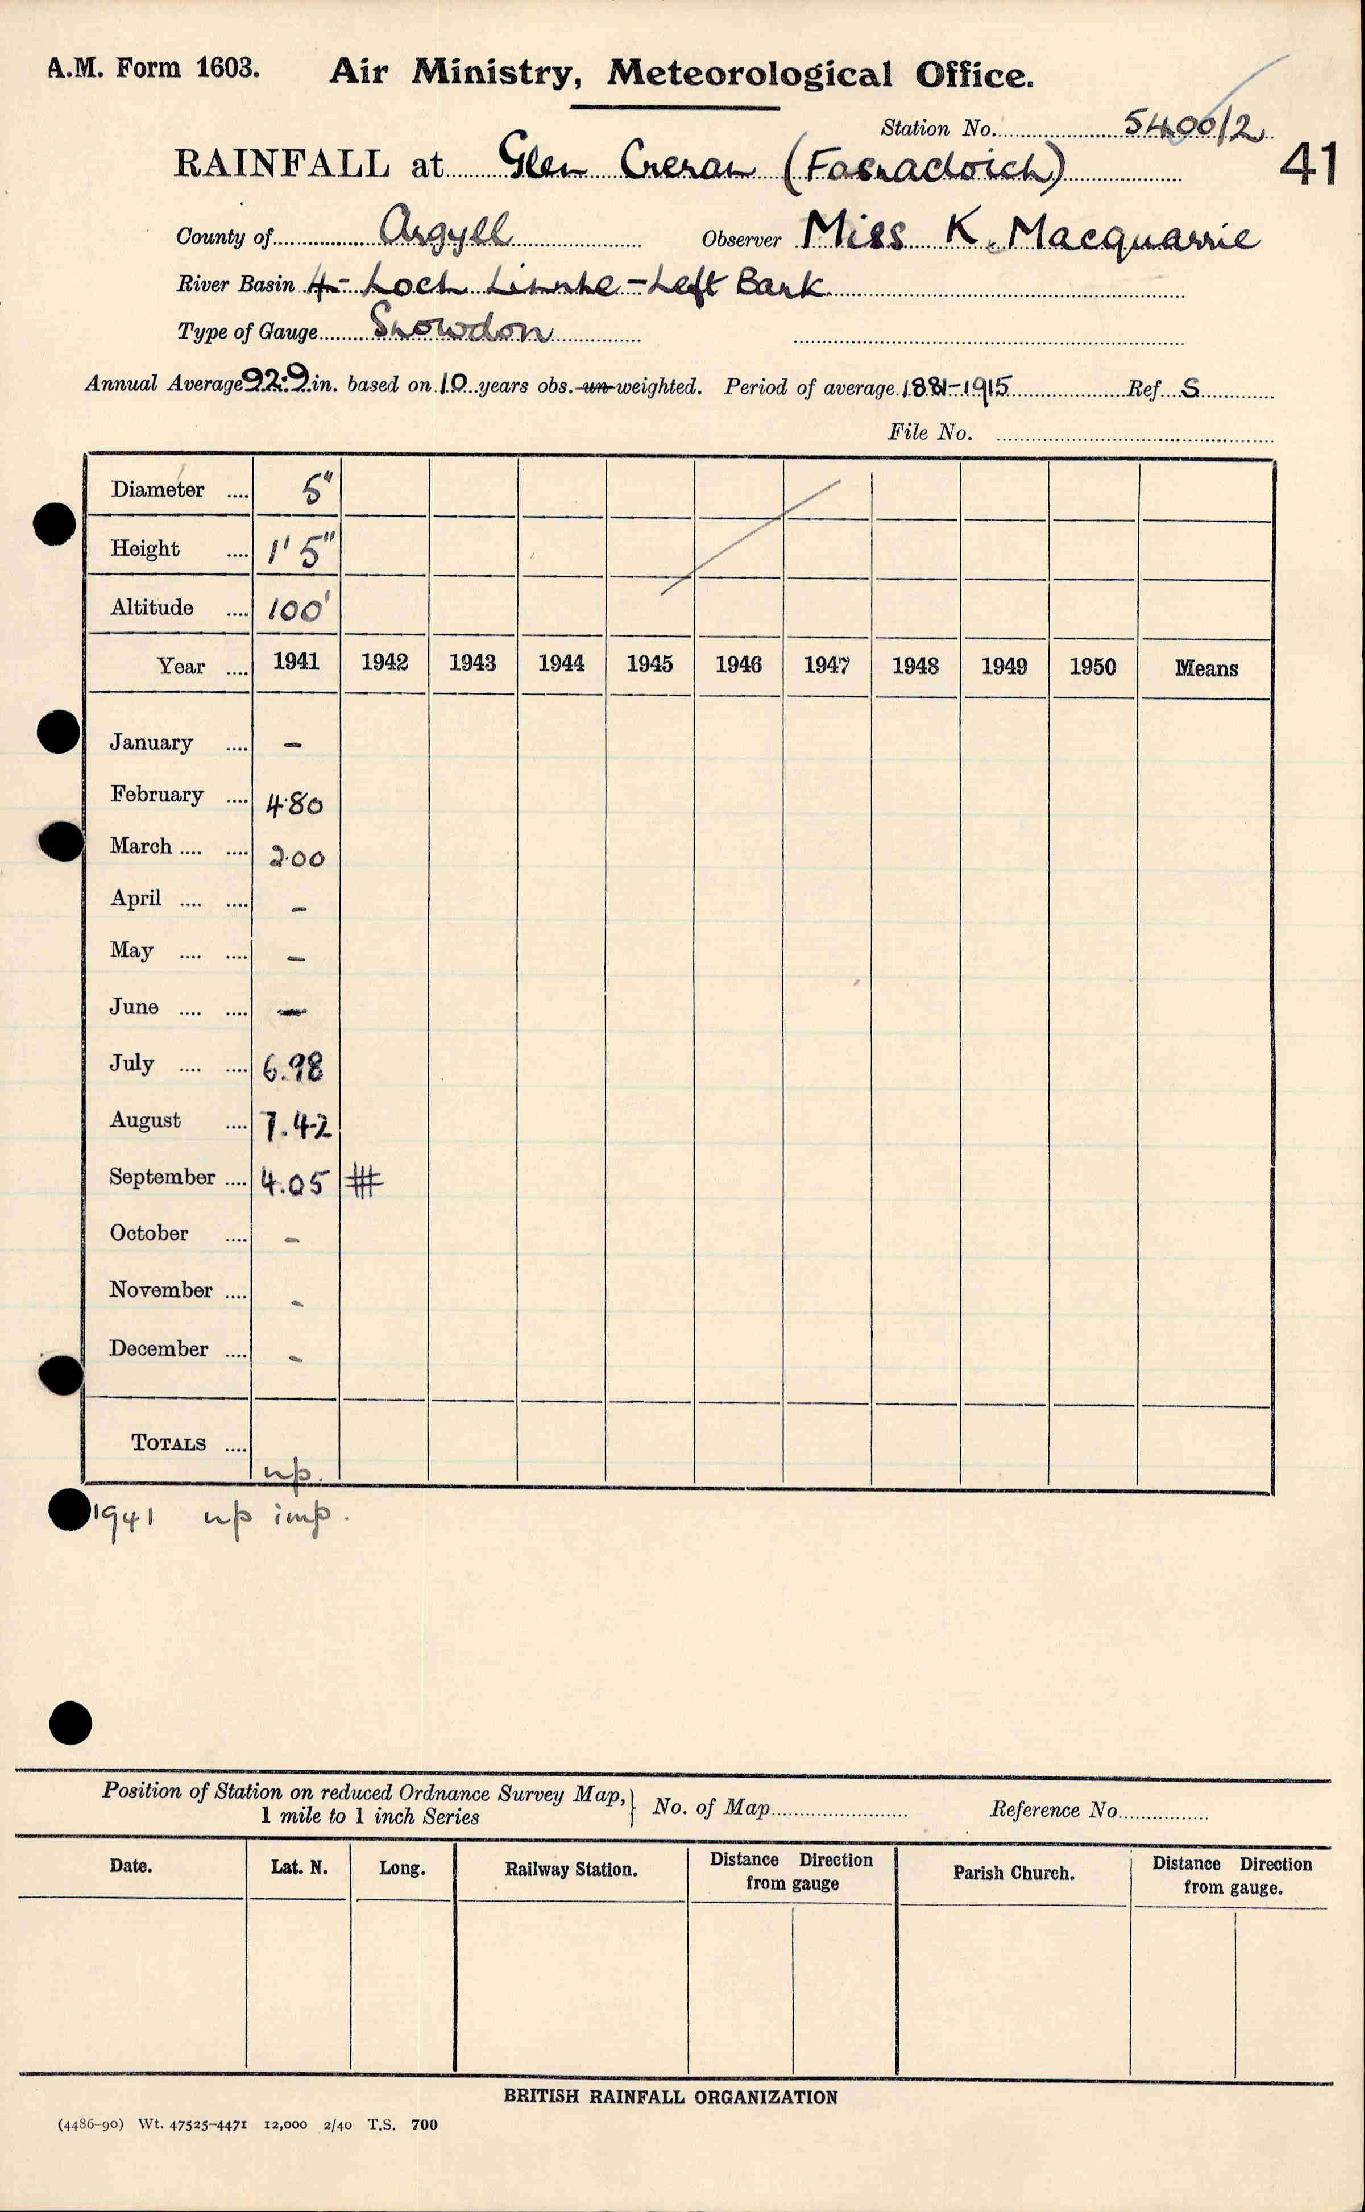 A.M. Form 1603. Air Ministry, Meteorological Office.
Station No. 5400/2
41
RAINFALL at Glen Creran (Fasnacloich)
County of Argyll Observer Miss K. Macquarrie
River Basin 4- Loch Linnhe - Left Bank
Type of Gauge Snowdon
Annual Average 92.9 in. based on 10 years obs. un-weighted. Period of average 1881-1915 Ref S
File No.
Diameter .... 5"
Height .... 1' 5"
Altitude .... 100'
Year .... 1941 1942 1943 1944 1945 1946 1947 1948 1949 1950 Means
January .... –
February .... 4.80
March .... .... 2.00
April .... .... –
May .... .... –
June .... .... –
July .... .... 6.98
August .... 7.42
September .... 4.05 #
October .... –
November .... –
December .... –
TOTALS ....
np.
1941 np imp.
Position of Station on reduced Ordnance Survey Map, 1 mile to 1 inch Series } No. of Map Reference No.
Date. Lat. N. Long. Railway Station. Distance Direction from gauge Parish Church. Distance Direction from gauge.
BRITISH RAINFALL ORGANIZATION
(4486-90) Wt. 47525-4471 12,000 2/40 T.S. 700